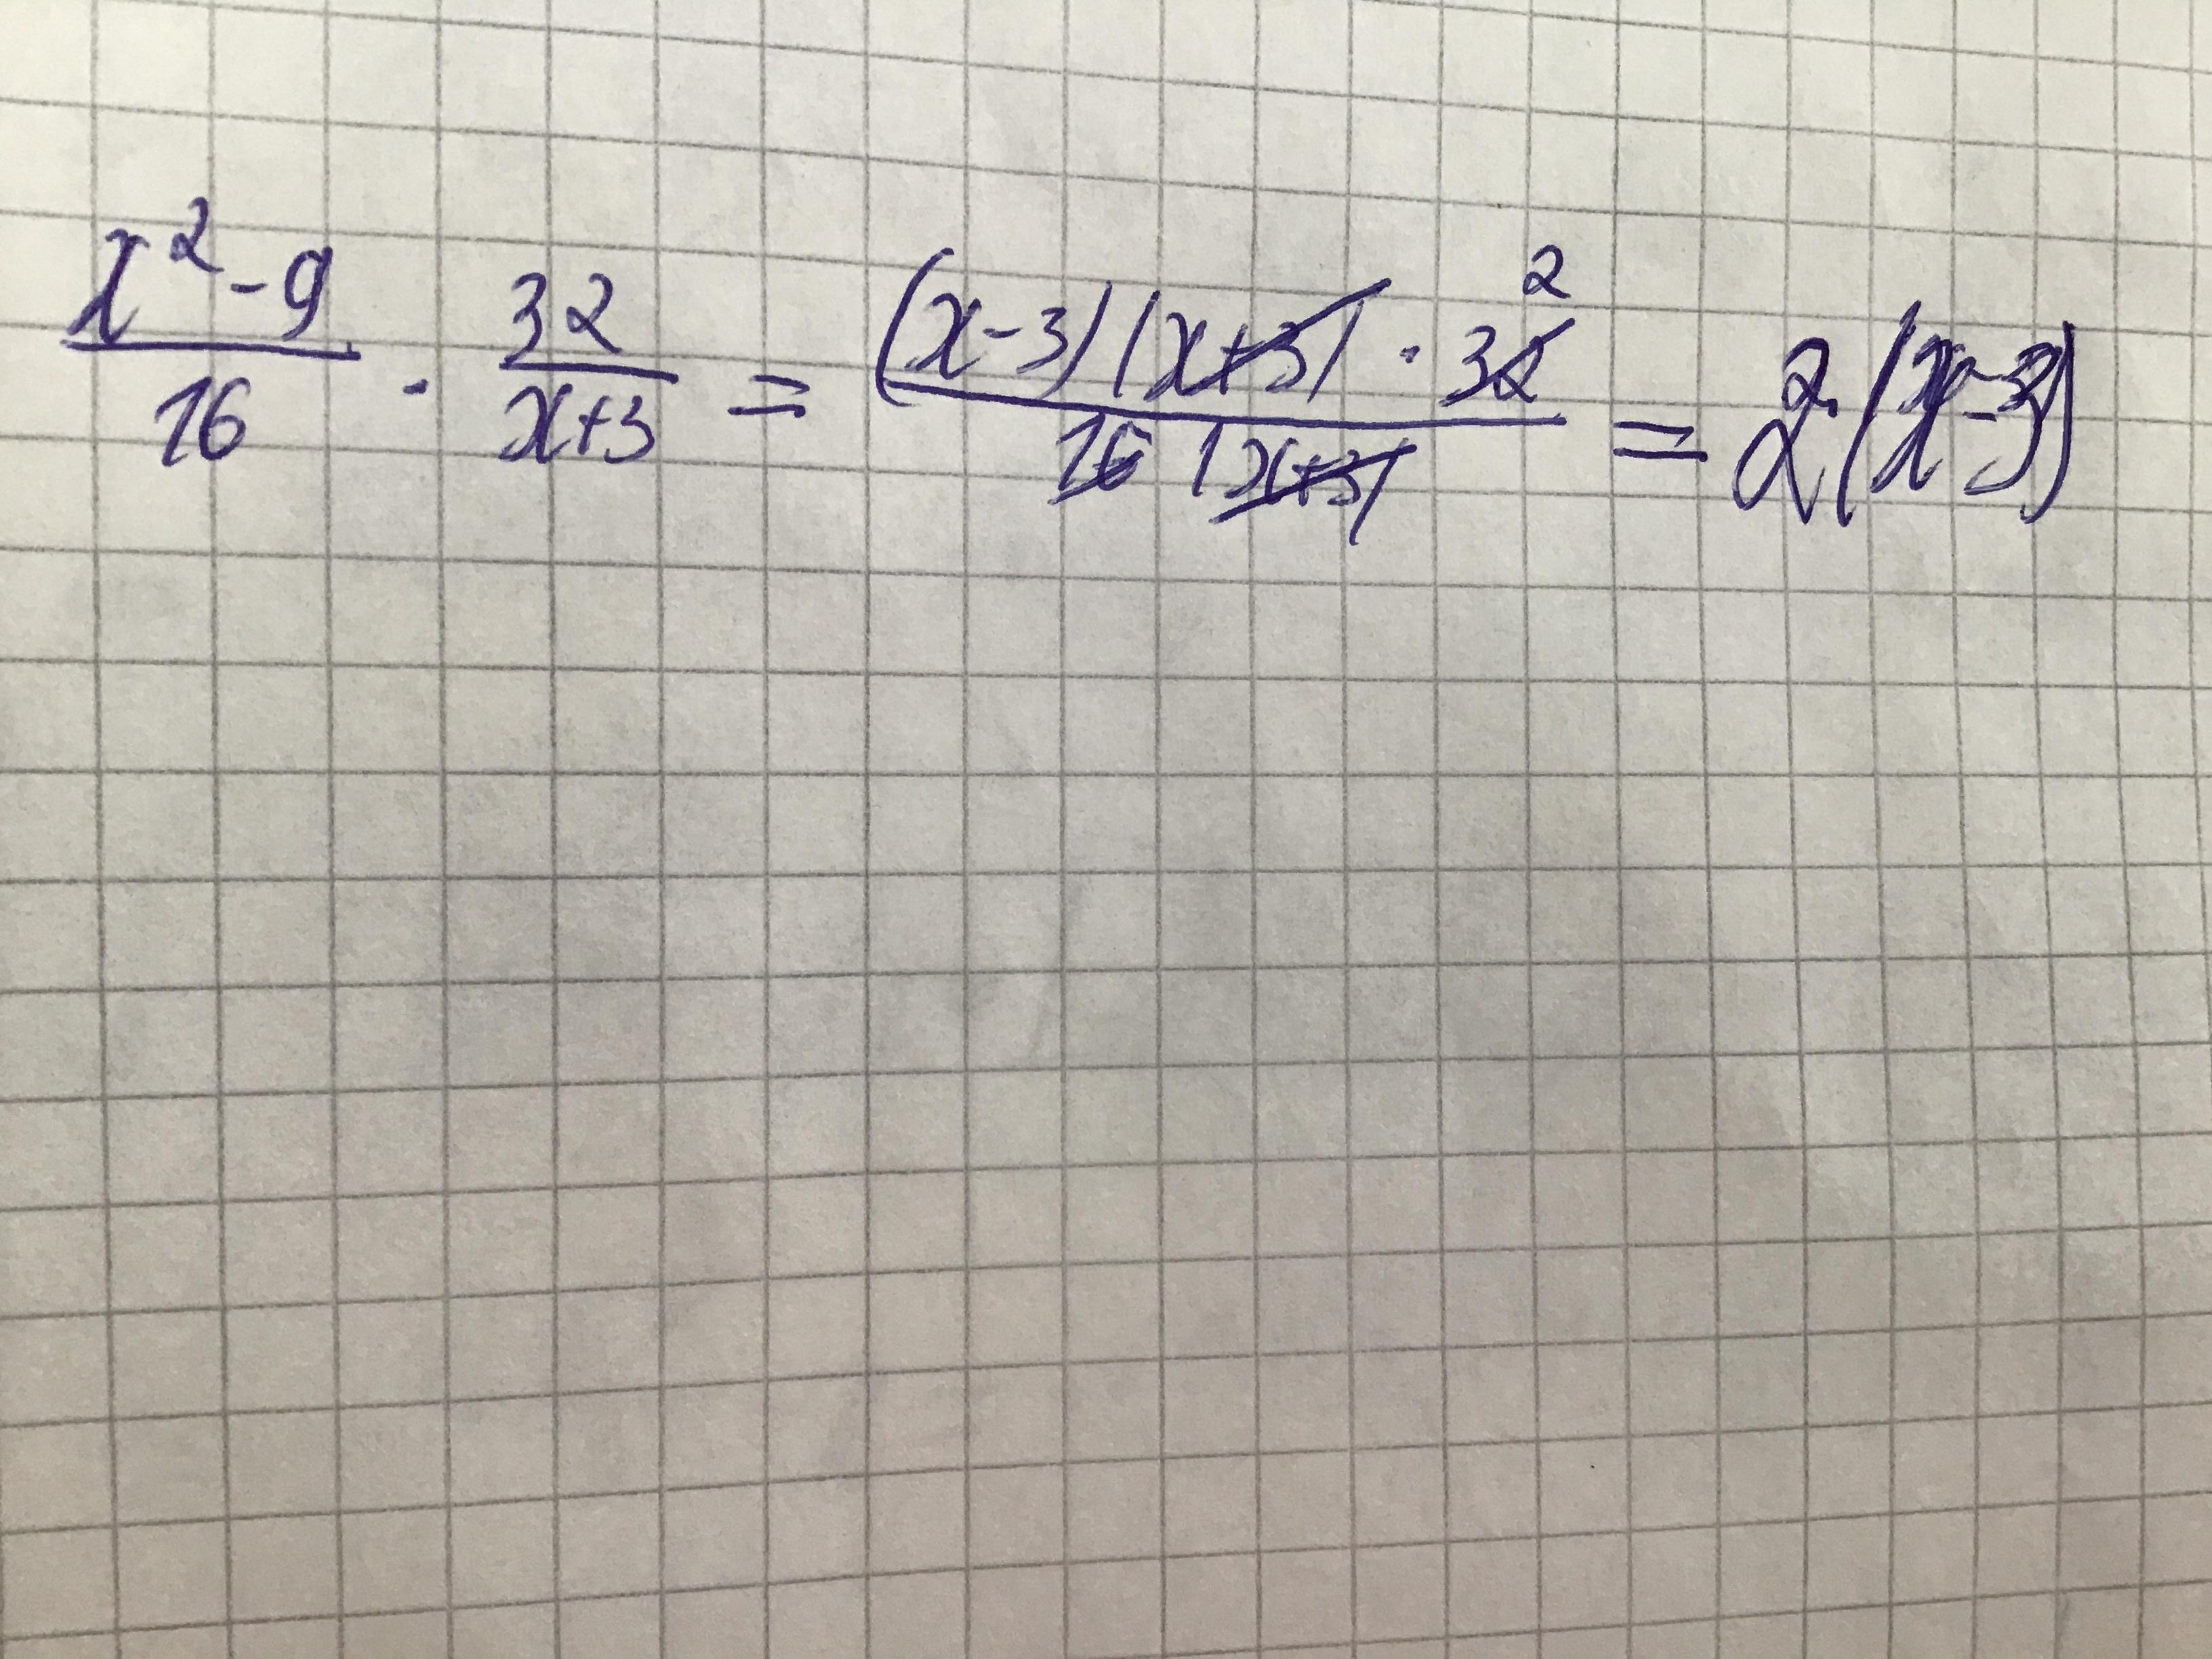 x²-9/16 · 32/x+3 = (x-3)(x+3) · 32 2/16 (x+3) = 2(x-3)